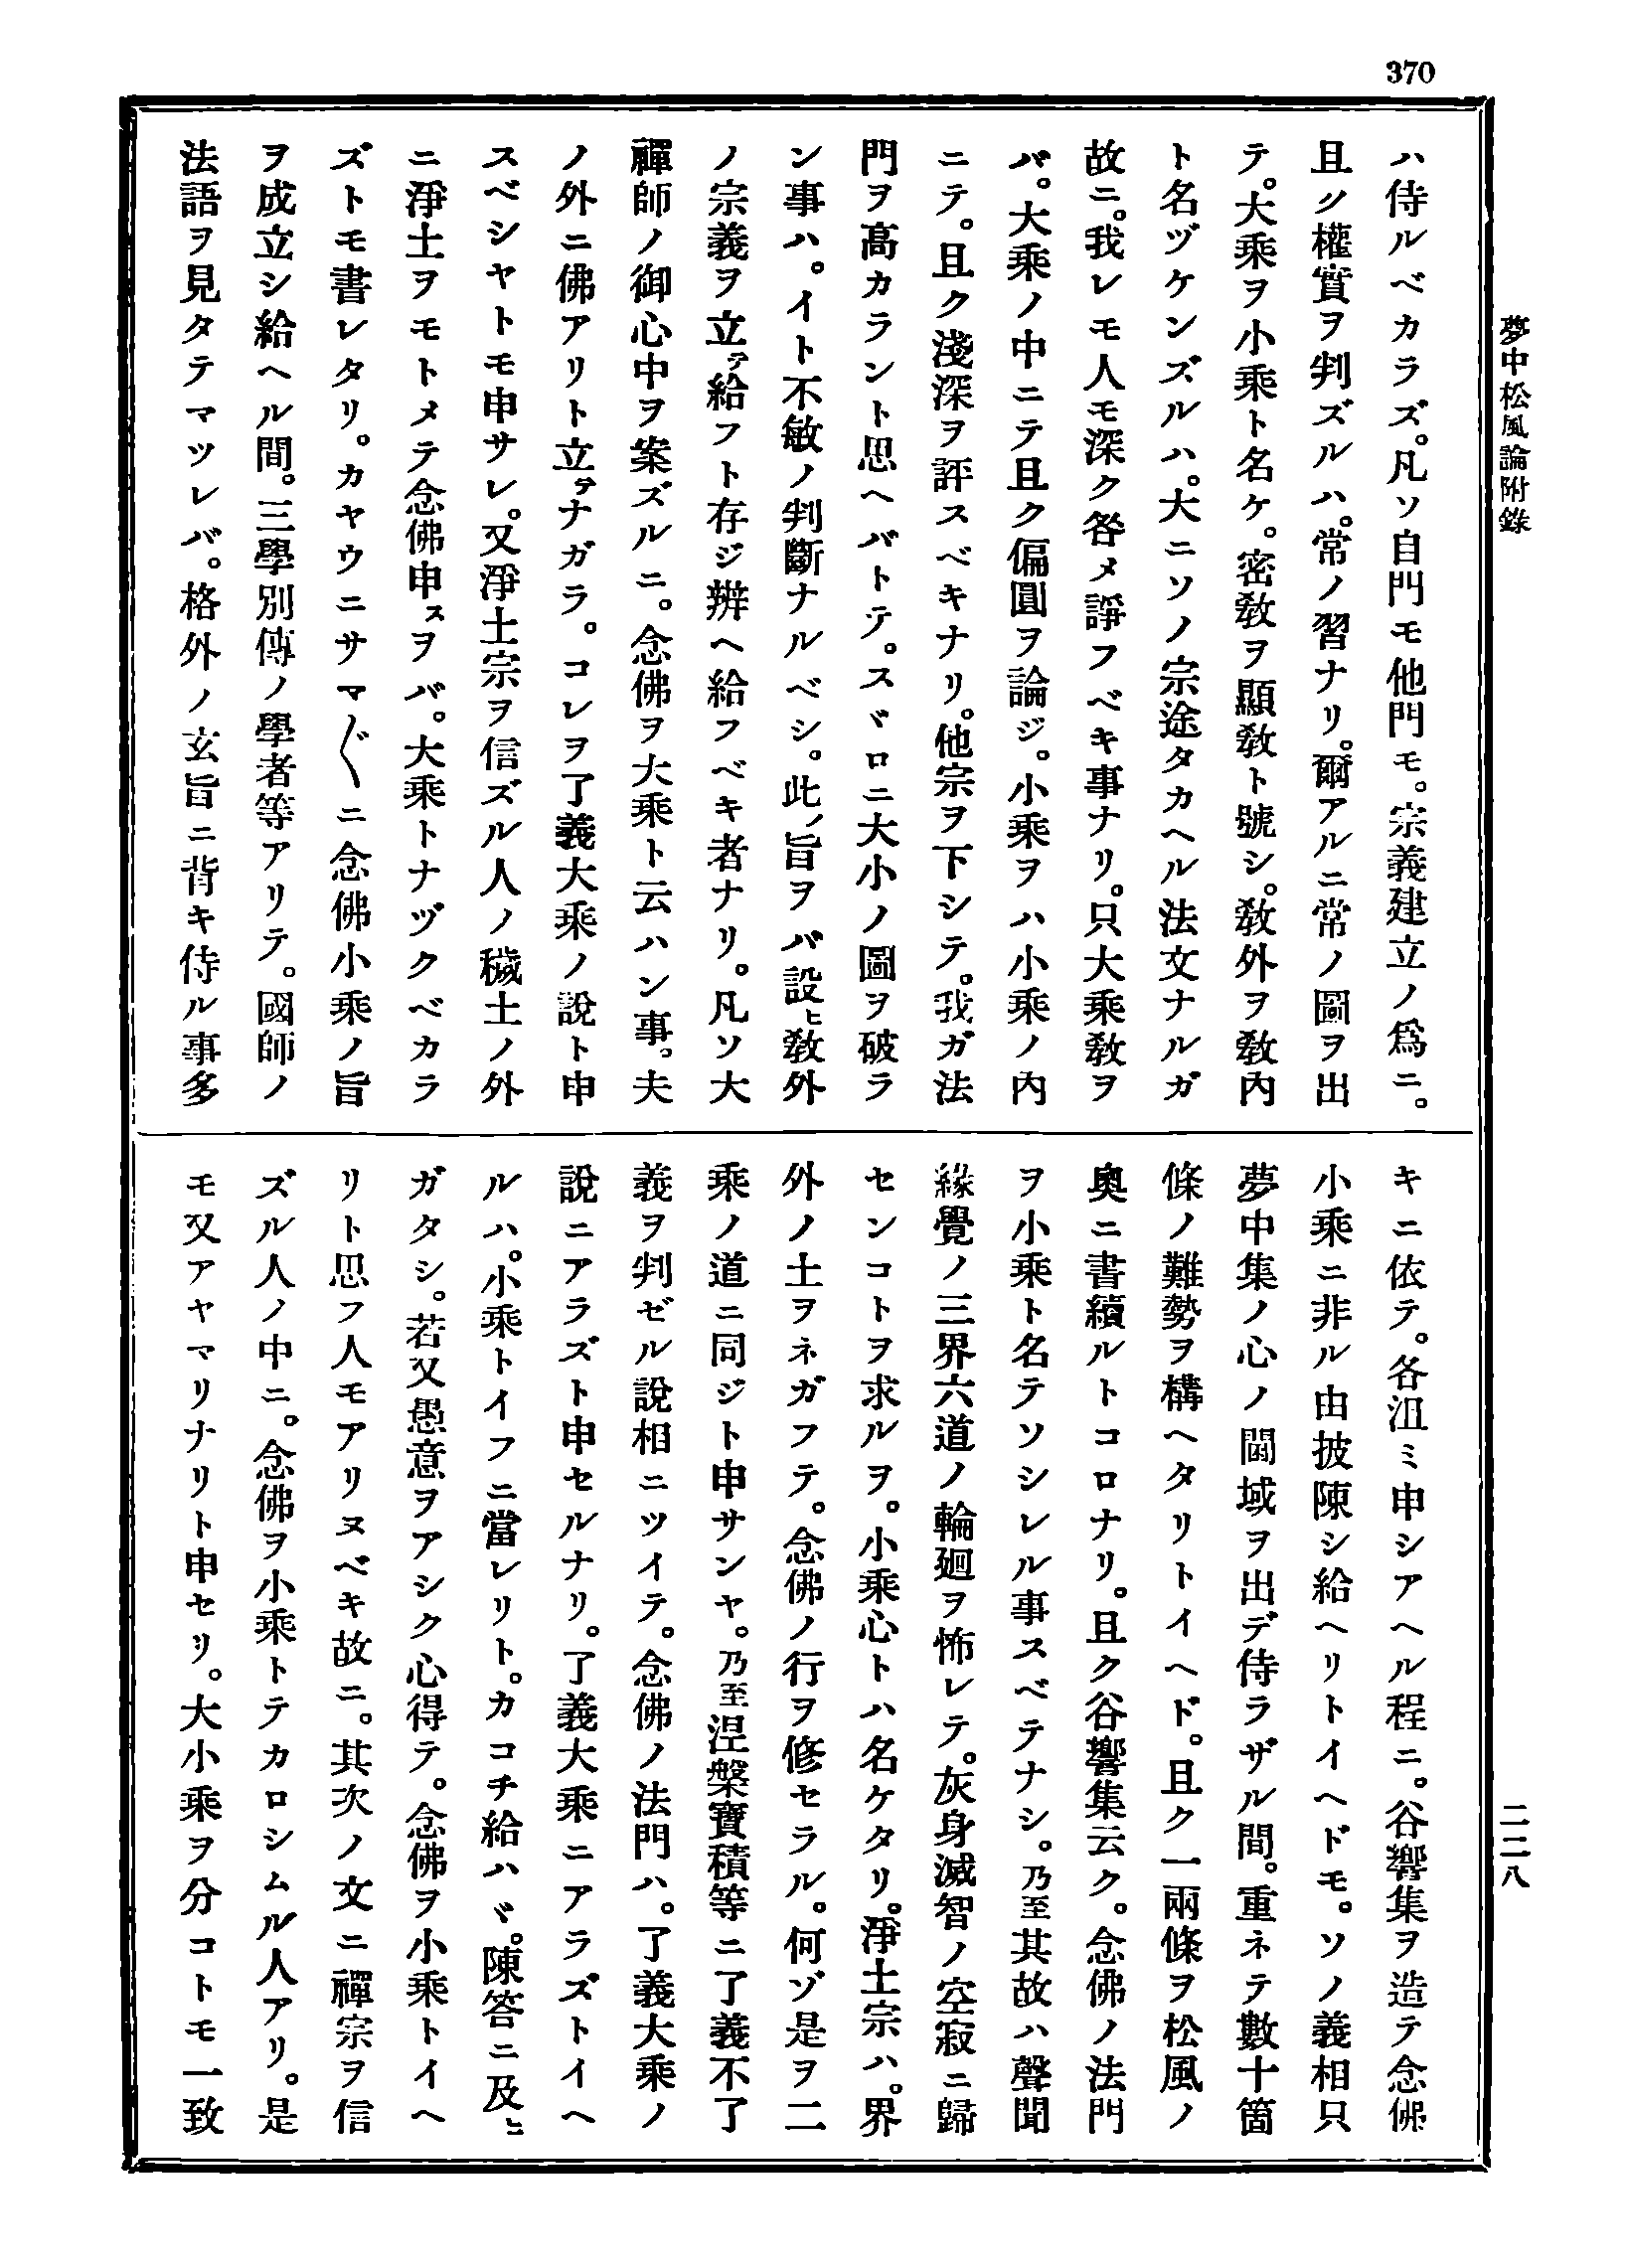 370
夢中松風論附錄
二二八
ハ侍ルベカラズ。凡ソ自門モ他門モ。宗義建立ノ爲ニ。
且ク權實ヲ判ズルハ。常ノ習ナリ。爾アルニ常ノ圖ヲ出
テ。大乘ヲ小乘ト名ケ。密敎ヲ顯敎ト號シ。敎外ヲ敎內
ト名ヅケンズルハ。大ニソノ宗途タカヘル法文ナルガ
故ニ。我レモ人モ深ク咎メ諍フベキ事ナリ。只大乘敎ヲ
バ。大乘ノ中ニテ且ク偏圓ヲ論ジ。小乘ヲハ小乘ノ內
ニテ。且ク淺深ヲ評スベキナリ。他宗ヲ下シテ。我ガ法
門ヲ高カラント思ヘバトテ。スヾロニ大小ノ圖ヲ破ラ
ン事ハ。イト不敏ノ判斷ナルベシ。此ノ旨ヲバ設ヒ敎外
ノ宗義ヲ立テ給フト存ジ辨ヘ給フベキ者ナリ。凡ソ大
禪師ノ御心中ヲ案ズルニ。念佛ヲ大乘ト云ハン事。夫
ノ外ニ佛アリト立テナガラ。コレヲ了義大乘ノ說ト申
スベシヤトモ申サレ。又淨土宗ヲ信ズル人ノ穢土ノ外
ニ淨土ヲモトメテ念佛申スヲバ。大乘トナヅクベカラ
ズトモ書レタリ。カヤウニサマ〴〵ニ念佛小乘ノ旨
ヲ成立シ給ヘル間。三學別傳ノ學者等アリテ。國師ノ
法語ヲ見タテマツレバ。格外ノ玄旨ニ背キ侍ル事多
キニ依テ。各沮ミ申シアヘル程ニ。谷響集ヲ造テ念佛
小乘ニ非ル由披陳シ給ヘリトイヘドモ。ソノ義相只
夢中集ノ心ノ閫域ヲ出デ侍ラザル間。重ネテ數十箇
條ノ難勢ヲ構ヘタリトイヘド。且ク一兩條ヲ松風ノ
奧ニ書續ルトコロナリ。且ク谷響集云ク。念佛ノ法門
ヲ小乘ト名テソシレル事スベテナシ。乃至其故ハ聲聞
緣覺ノ三界六道ノ輪廻ヲ怖レテ。灰身滅智ノ空寂ニ歸
センコトヲ求ルヲ。小乘心トハ名ケタリ。淨土宗ハ。界
外ノ土ヲネガフテ。念佛ノ行ヲ修セラル。何ゾ是ヲ二
乘ノ道ニ同ジト申サンヤ。乃至涅槃寶積等ニ了義不了
義ヲ判ゼル說相ニツイテ。念佛ノ法門ハ。了義大乘ノ
說ニアラズト申セルナリ。了義大乘ニアラズトイヘ
ルハ。小乘トイフニ當レリト。カコチ給ハヾ。陳答ニ及ヒ
ガタシ。若又愚意ヲアシク心得テ。念佛ヲ小乘トイヘ
リト思フ人モアリヌベキ故ニ。其次ノ文ニ禪宗ヲ信
ズル人ノ中ニ。念佛ヲ小乘トテカロシムル人アリ。是
モ又アヤマリナリト申セリ。大小乘ヲ分コトモ一致